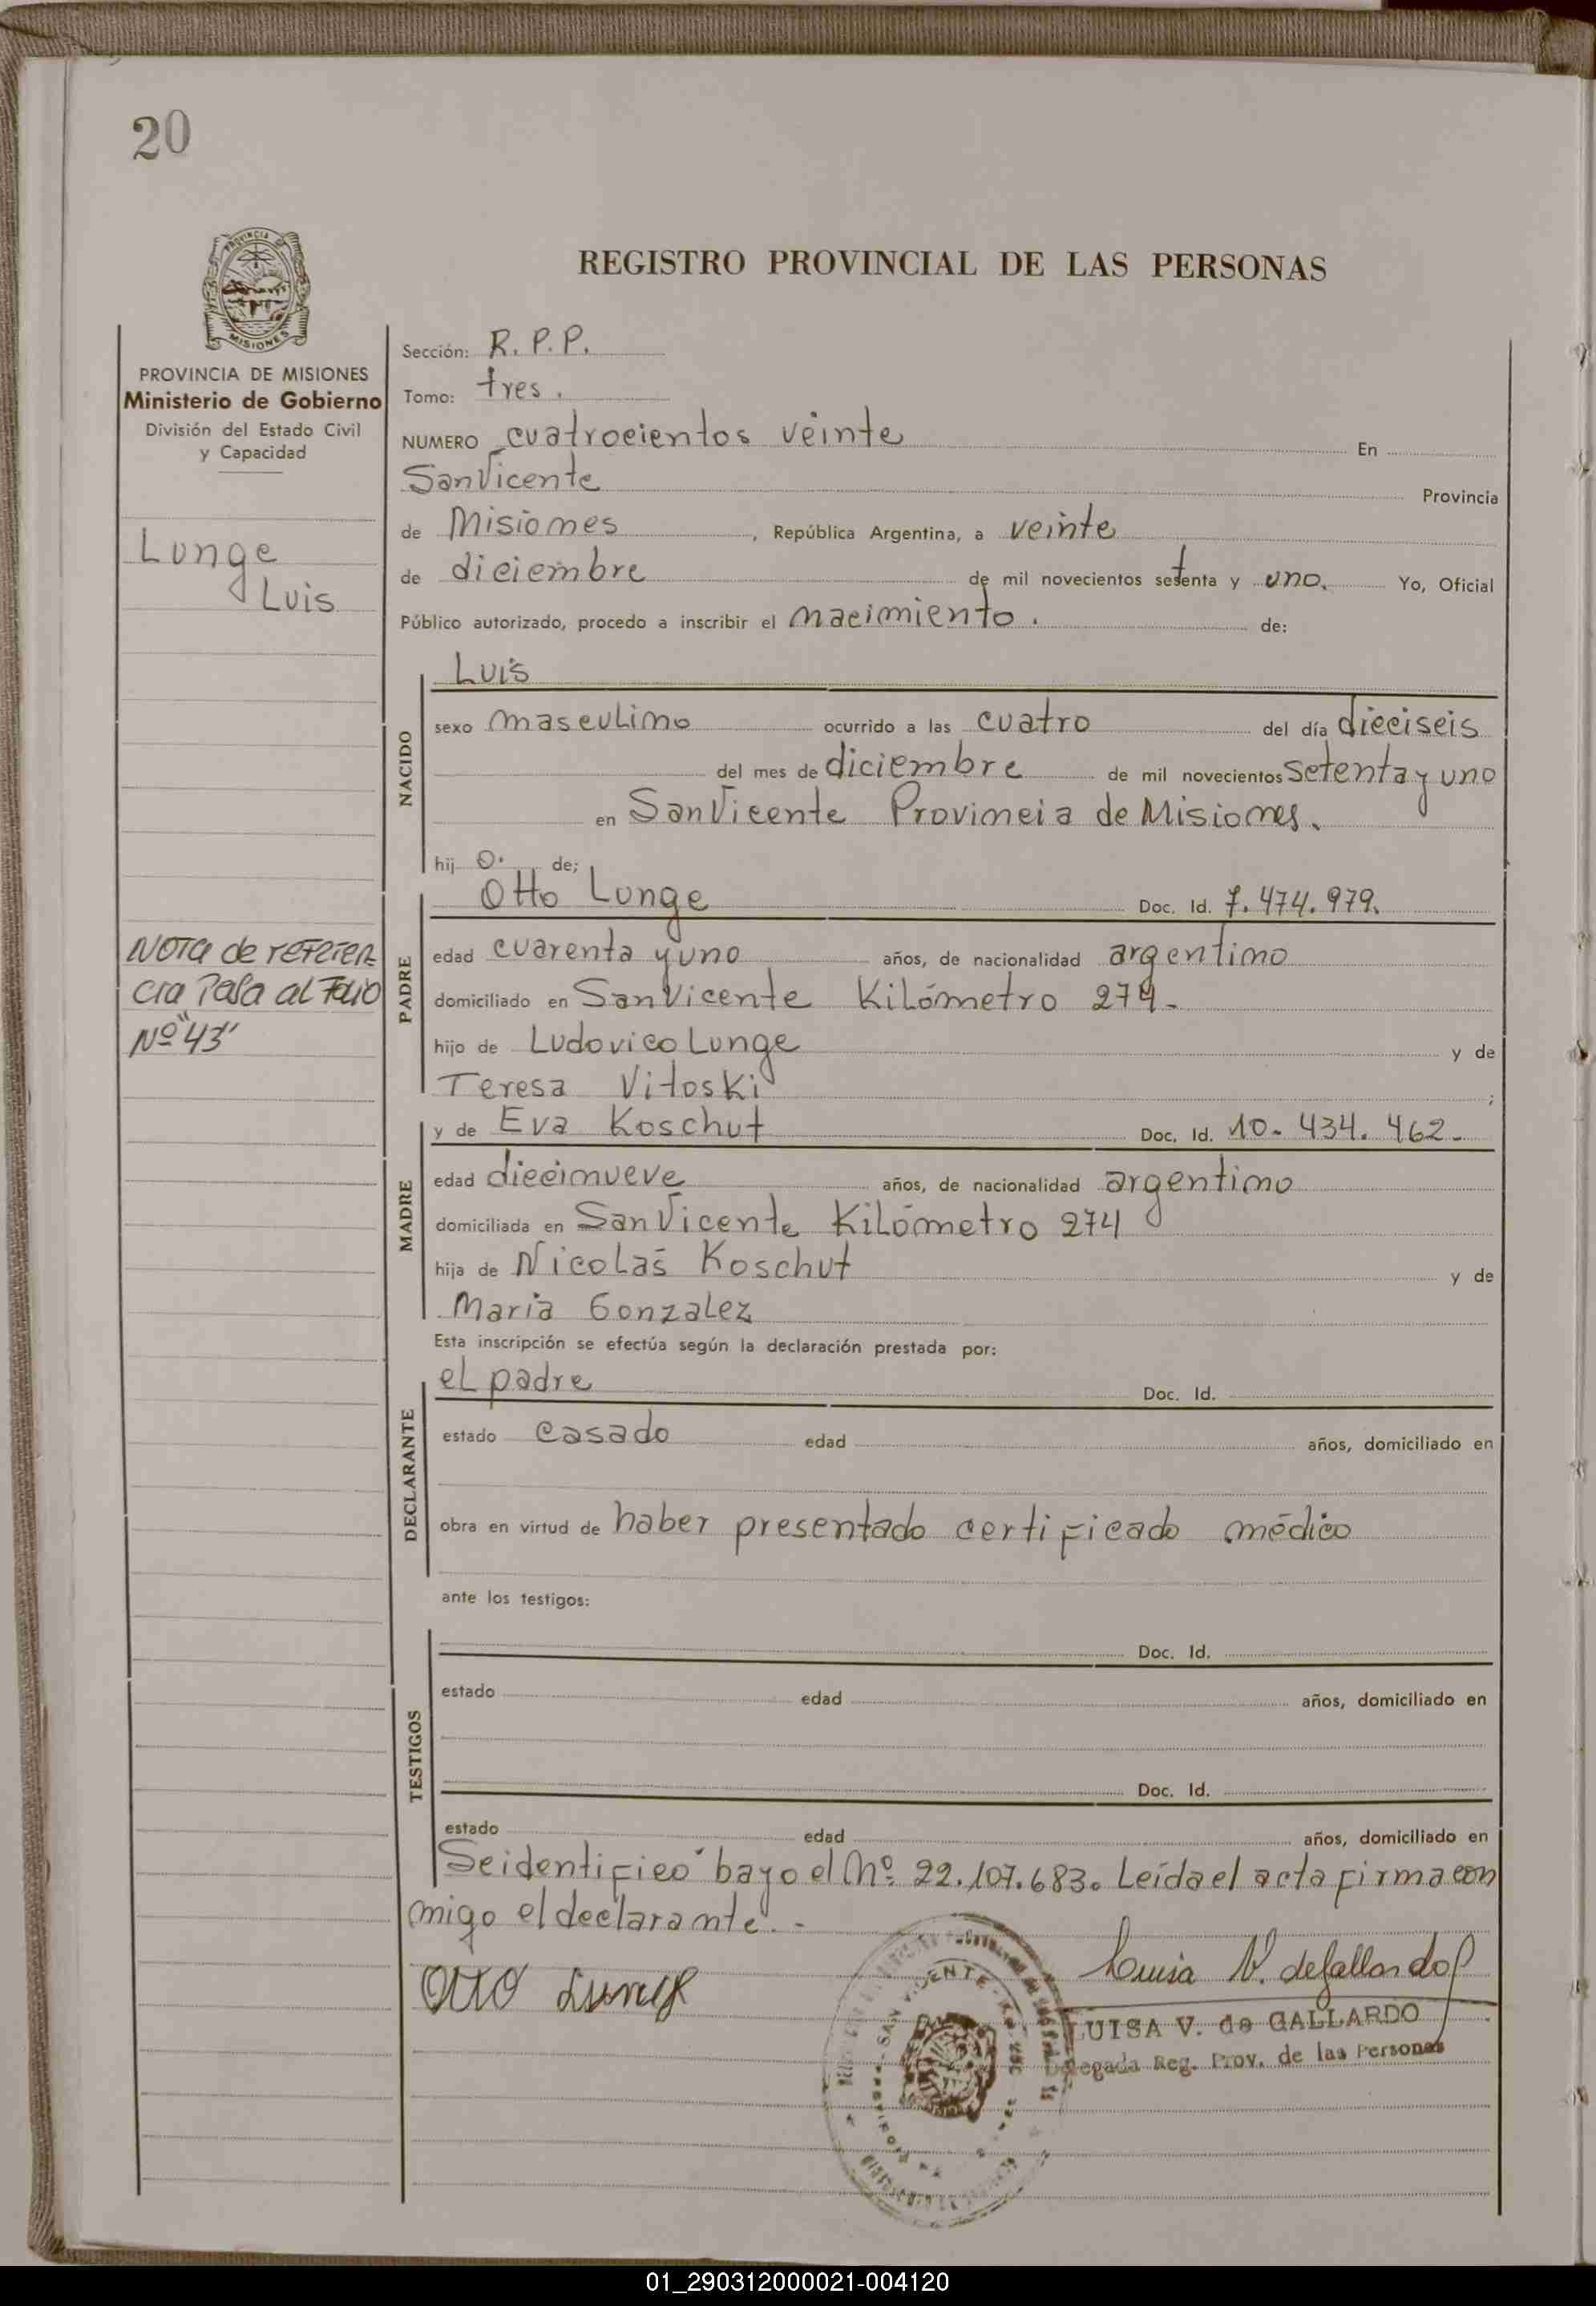 20
PROVINCIA DE
MISIONES
REGISTRO PROVINCIAL DE LAS PERSONAS
PROVINCIA DE MISIONES
Ministerio de Gobierno
División del Estado Civil
y Capacidad
Lunge
Luis
Sección: R. P. P.
Tomo: tres.
NUMERO cuatrocientos veinte En
San Vicente Provincia
de Misiones, República Argentina, a veinte
de diciembre de mil novecientos setenta y uno. Yo, Oficial
Público autorizado, procedo a inscribir el nacimiento. de:
NACIDO
Luis
sexo masculino ocurrido a las cuatro del día dieciseis
del mes de diciembre de mil novecientos setenta y uno
en San Vicente Provincia de Misiones.
hij o. de;
PADRE
Otto Lunge Doc. Id. 7.474.979.
edad cuarenta y uno años, de nacionalidad argentino
domiciliado en San Vicente Kilómetro 274-
hijo de Ludovico Lunge y de
Teresa Vitoski ;
NOTA de referen
cia Pasa al Folio
Nº "43"
MADRE
y de Eva Koschut Doc. Id. 10-434.462-
edad diecinueve años, de nacionalidad argentino
domiciliada en San Vicente Kilómetro 274
hija de Nicolás Koschut y de
Maria Gonzalez
Esta inscripción se efectúa según la declaración prestada por:
DECLARANTE
el padre Doc. Id.
estado casado edad años, domiciliado en
obra en virtud de haber presentado certificado médico
ante los testigos:
TESTIGOS
Doc. Id.
estado edad años, domiciliado en
Doc. Id.
estado edad años, domiciliado en
Se identificó bayo el Nº 22.107.683. Leída el acta firma con
migo el declarante.-
Otto Lunge
Luisa V. de Gallardo
SAN VICENTE
LUISA V. de GALLARDO
Delegada Reg. Prov. de las Personas
01_290312000021-004120